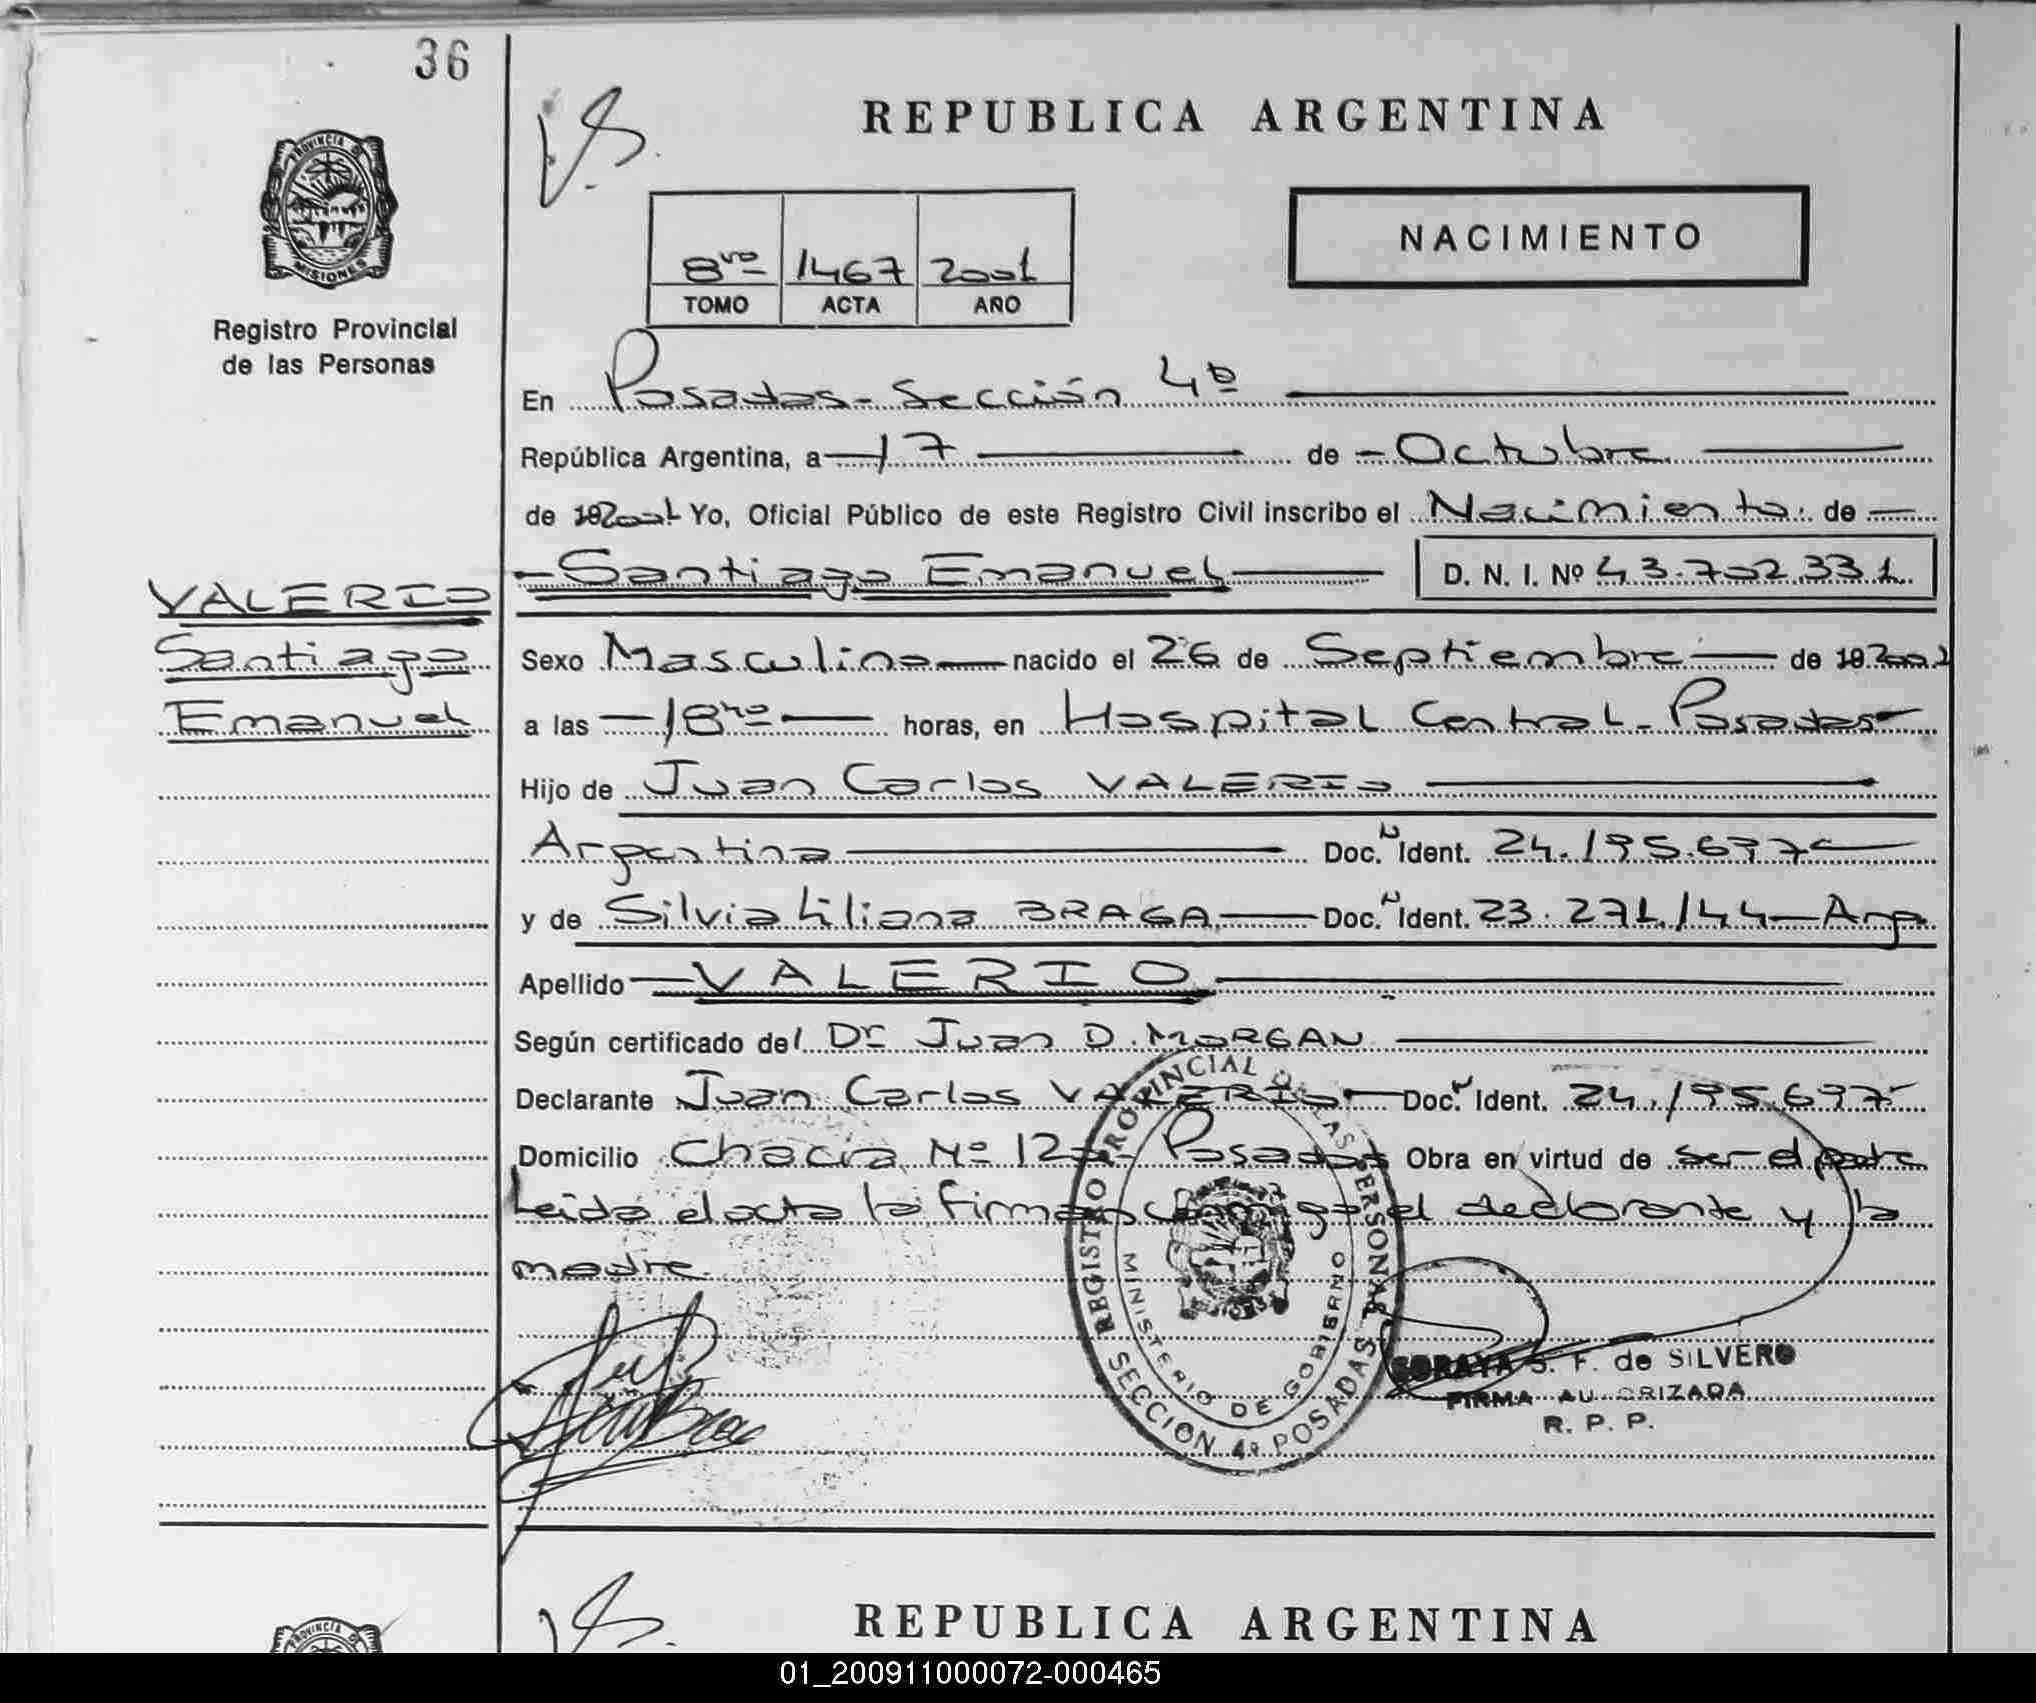 36
REPUBLICA ARGENTINA
PROVINCIA DE
MISIONES
Registro Provincial
de las Personas
NACIMIENTO
8vo 1467 2001
TOMO ACTA AÑO
En Posadas - Sección 4º
República Argentina, a 17 de Octubre
de 192001 Yo, Oficial Público de este Registro Civil inscribo el Nacimiento de
Santiago Emanuel D. N. I. Nº 43.702.331
VALERIO
Santiago
Emanuel
Sexo Masculino nacido el 26 de Septiembre de 192001
a las 18 horas, en Hospital Central - Posadas
Hijo de Juan Carlos VALERIO
Argentina Doc. N Ident. 24.195.697
y de Silvia Liliana BRAGA Doc. N Ident. 23.271.144 - Arg.
Apellido VALERIO
Según certificado del Dr Juan D. MORGAN
Declarante Juan Carlos VALERIO Doc. N Ident. 24.195.697
Domicilio Chacra Nº 12 - Posadas Obra en virtud de ser el padre
Leida el acta la firman conmigo el declarante y la
madre.
REGISTRO PROVINCIAL DE LAS PERSONAS
MINISTERIO DE GOBIERNO
SECCION 4ª POSADAS
SORAYA S. F. de SILVERO
FIRMA AUTORIZADA
R. P. P.
REPUBLICA ARGENTINA
PROVINCIA DE
01_200911000072-000465